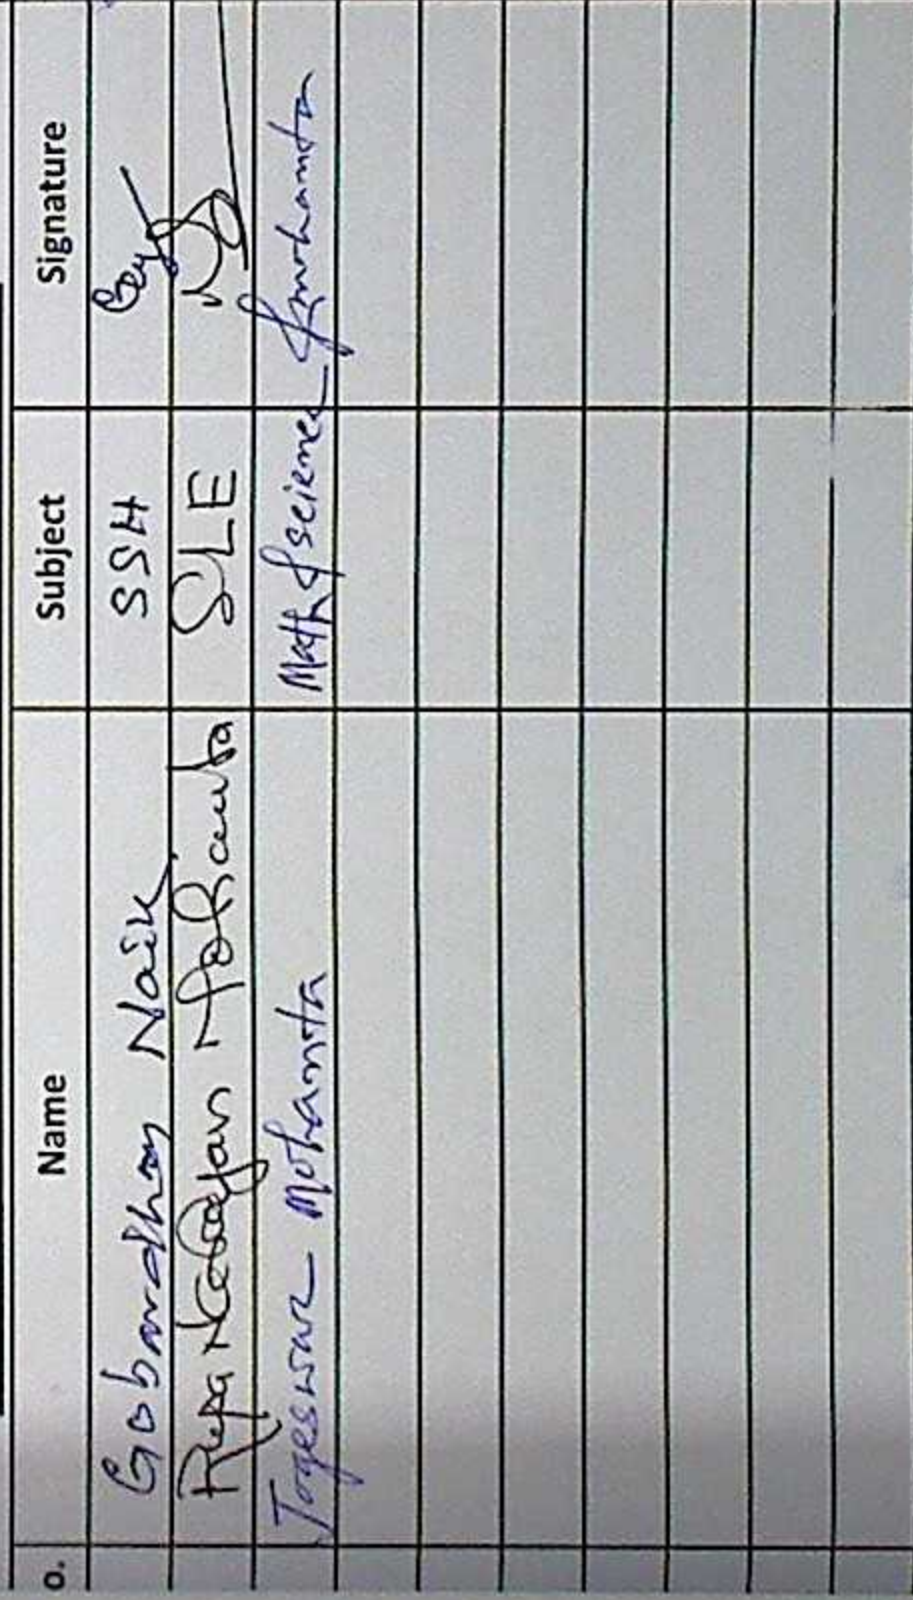 o. Name Subject Signature
Gobardhan Naik SSH
Mohanta SLE
Jogeswar Mohanta Math & science Jmohanta